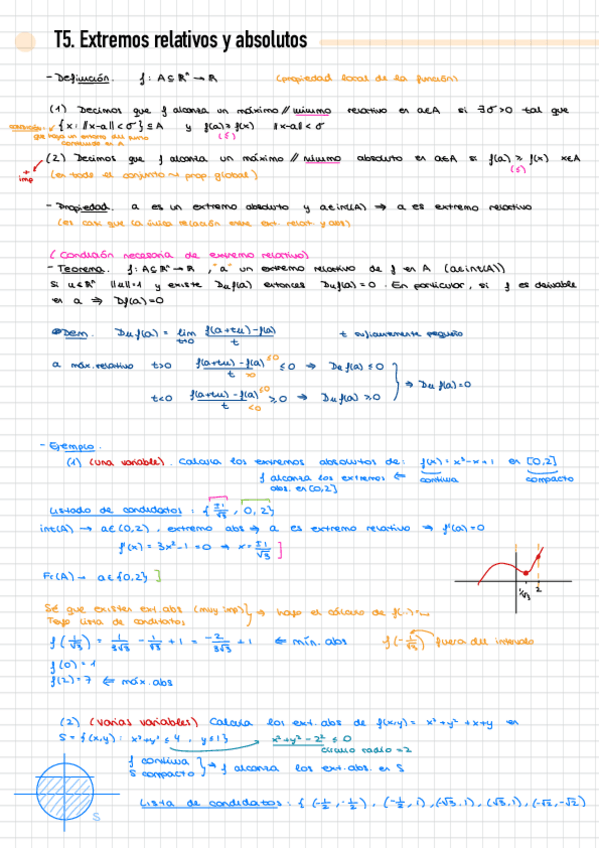 T5. Extremos relativos y absolutos
- Definición. f: A⊆ℝⁿ → ℝ (propiedad local de la función)
(1) Decimos que f alcanza un máximo // mínimo relativo en a∈A si ∃σ>0 tal que
condición: {x: ||x-a|| < σ} ⊆ A y f(a) ≥ f(x) ||x-a|| < σ
que haya un entorno del punto (≤)
contenido en A
(2) Decimos que f alcanza un máximo // mínimo absoluto en a∈A si f(a) ≥ f(x) x∈A
+ imp (en todo el conjunto ~ prop. global) (≤)
- Propiedad. a es un extremo absoluto y a∈int(A) ⇒ a es extremo relativo
(es casi que la única relación entre ext. relat y abs)
(Condición necesaria de extremo relativo)
- Teorema. f: A⊆ℝⁿ → ℝ, "a" un extremo relativo de f en A (a∈int(A))
Si u∈ℝⁿ ||u||=1 y existe Duf(a) entonces Duf(a) = 0. En particular, si f es derivable
en a ⇒ Df(a)=0
Dem. Duf(a) = lim t→0 f(a+tu)-f(a) / t t suficientemente pequeño
a máx. relativo t>0 f(a+tu)-f(a) ≤0 / t >0 ≤ 0 ⇒ Duf(a) ≤ 0
⇒ Duf(a)=0
t<0 f(a+tu)-f(a) ≤0 / t <0 ≥ 0 ⇒ Duf(a) ≥ 0
- Ejemplo.
(1) (una variable). Calcula los extremos absolutos de: f(x) = x³-x+1 en [0,2]
f alcanza los extremos ⇐ continua compacto
abs. en [0,2]
Listado de candidatos: {±1/√3, 0, 2}
int(A) → a∈(0,2), extremo abs ⇒ a es extremo relativo ⇒ f'(a)=0
f'(x) = 3x²-1 = 0 ⇒ x = ±1/√3
Fr(A) - a∈{0,2}
1/√3 2
Sé que existen ext. abs (muy imp)
Tengo lista de candidatos
⇒ hago el cálculo de f(-)=...
f(1/√3) = 1/3√3 - 1/√3 + 1 = -2/3√3 + 1 ⇐ mín. abs f(-1/√3) fuera del intervalo
f(0) = 1
f(2) = 7 ⇐ máx. abs
(2) (varias variables) Calcula los ext. abs de f(x,y) = x²+y²+x+y en
S = {(x,y): x²+y² ≤ 4, y ≤ 1} x²+y²-2² ≤ 0
círculo radio = 2
f continua
S compacto
⇒ f alcanza los ext. abs. en S
S
Lista de candidatos: {(-1/2, -1/2), (-1/2, 1), (-√3, 1), (√3, 1), (-√2, -√2)